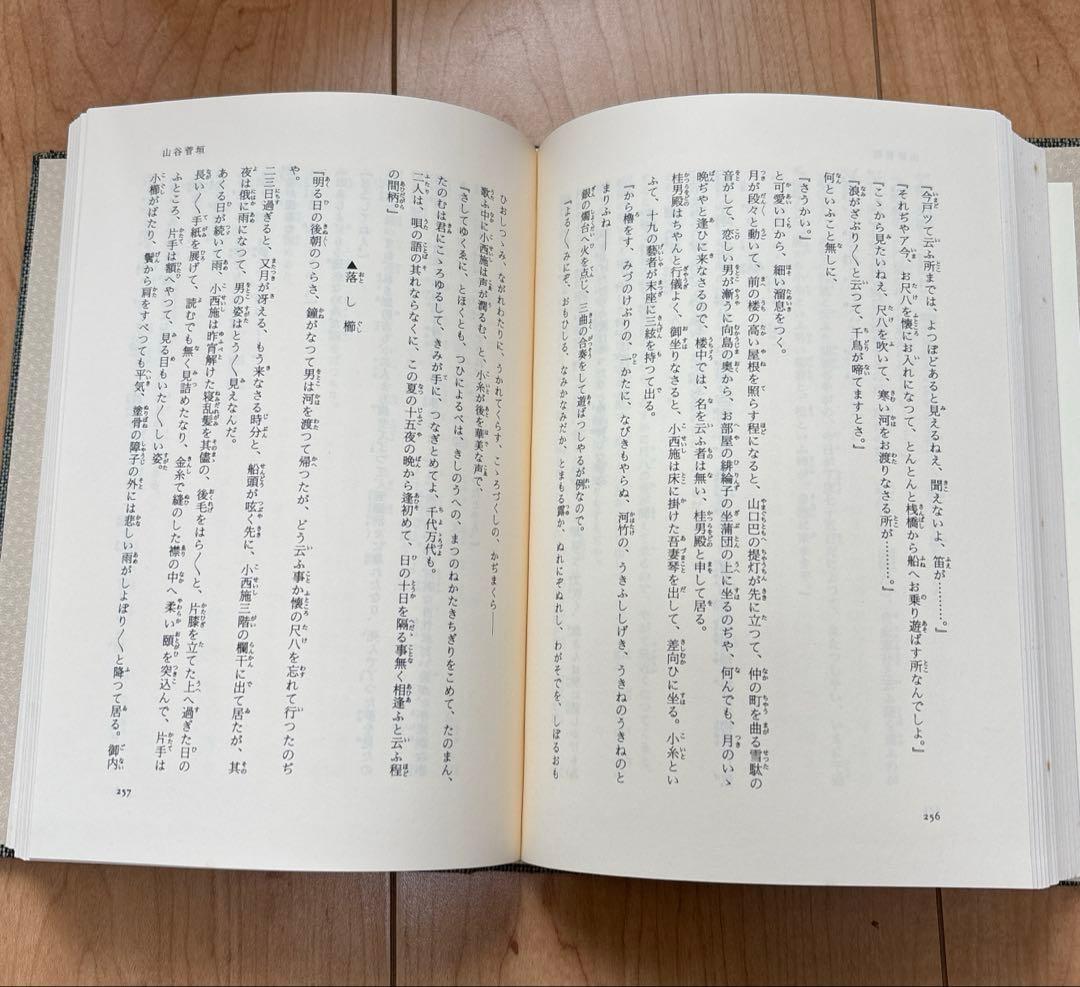 『今戸ッて云ふ所までは、よつぽどあると見えるねえ、聞えないよ、笛が…………。』
『それぢやア今、お尺八を懐にお入れになつて、とんとんと桟橋から船へお乗り遊ばす所なんでしよ。』
『こゝから見たいねえ、尺八を吹いて、寒い河をお渡りなさる所が…………。』
『浪がざぶり〳〵と云つて、千鳥が啼てますとさ。』
何といふこと無しに、
『さうかい。』
と可愛い口から、細い溜息をつく。
月が段々と動いて、前の楼の高い屋根を照らす程になると、山口巴の提灯が先に立つて、仲の町を曲る雪駄の
音がして、恋しい男が漸うに向島の奥から、お部屋の緋綸子の坐蒲団の上に坐るのぢや、何んでも、月のいゝ
晩ぢやと逢ひに来なさるので、楼中では、名を云ふ者は無い、桂男殿と申して居る。
桂男殿はちやんと行儀よく、御坐りなさると、小西施は床に掛けた吾妻琴を出して、差向ひに坐る。小糸とい
ふて、十九の藝者が末座に三絃を持つて出る。
銀の燭台へ火を点じ、三曲の合奏をして遊ばつしやるが例なので。
『から櫓をす、みづのけぶりの、一かたに、なびきもやらぬ、河竹の、うきふししげき、うきねのうきねのと
まりふね――
『よる〳〵みにぞ、おもひしる、なみかなみだか、とまもる露か、ぬれにぞぬれし、わがそでを、しぼるおも
256
山谷菅垣
ひおしつゝみ、ながれわたりに、うかれてくらす、こゝろづくしの、かぢまくら――
歌ふ中に小西施は声が潤るむ、と、小糸が後を華美な声で、
『さしてゆくゑに、とほくとも、つひによるべは、きしのうへの、まつのねかたきちぎりをこめて、たのまん、
たのむは君にこゝろゆるして、きみが手に、つなぎとめてよ、千代万代も。
二人は、唄の語の其れならなくに、この夏の十五夜の晩から逢初めて、日の十日を隔る事無く相逢ふと云ふ程
の間柄。』
▲落し櫛
『明る日の後朝のつらさ、鐘がなつて男は河を渡つて帰つたが、どう云ふ事か懐の尺八を忘れて行つたのぢ
や。
二三日過ぎると、又月が冴える、もう来なさる時分と、船頭が呟く先に、小西施三階の欄干に出て居たが、其
夜は俄に雨になつて、男の姿はとう〳〵見えなんだ。
あくる日が続いて雨、小西施は昨宵解けた寝乱髪を其儘の、後毛をはら〳〵と、片膝を立てた上へ過ぎた日の
長い〳〵手紙を展げて、読むでも無く見詰めたなり、金糸で縫のした襟の中へ柔い頤を突込んで、片手は
ふところ、片手は額へやつて、見る目もいた〳〵しい姿。
小櫛がぱたり、鬢から肩をすべつても平気、塗骨の障子の外には悲しい雨がしよぼり〳〵と降つて居る。御内
257